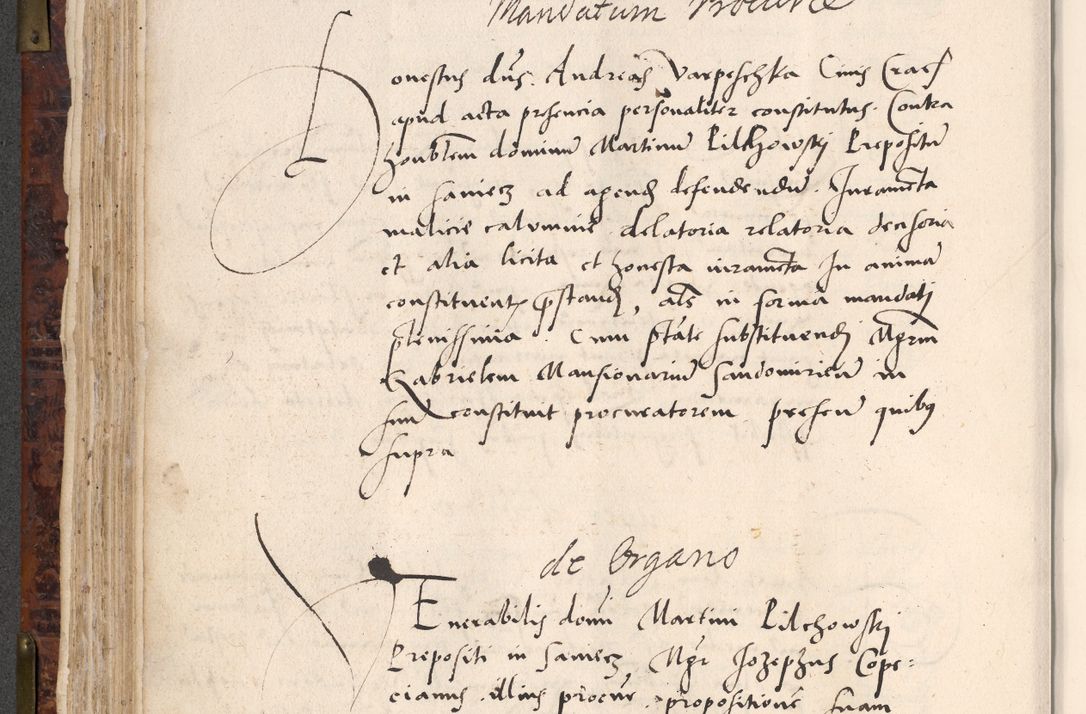 Mandatum
Honestus dns Andreas Varpeschka Civis Crac
apud acta presencia personaliter constitutus Contra
honblem dominum Martinum Pilchowskj Prepositu
in Saniecz ad agend defendendu. Iuramcta
malicie calumnie delatoria relatoria decisoria
et alia licita et honesta iuramcta In anima
constituent prestandj, als in forma mandatj
plenissima. Cum ptate substituendj Mgrm
Gabrielem Mansionariu Sandomirien in
sum constituit procuratorem presen quibus
supra
de Organo
Venerabilis domi Martini Pilchowskj
Prepositi in Saniecz Mgr Iozephus Cope:
cianus illius procur propositione suam